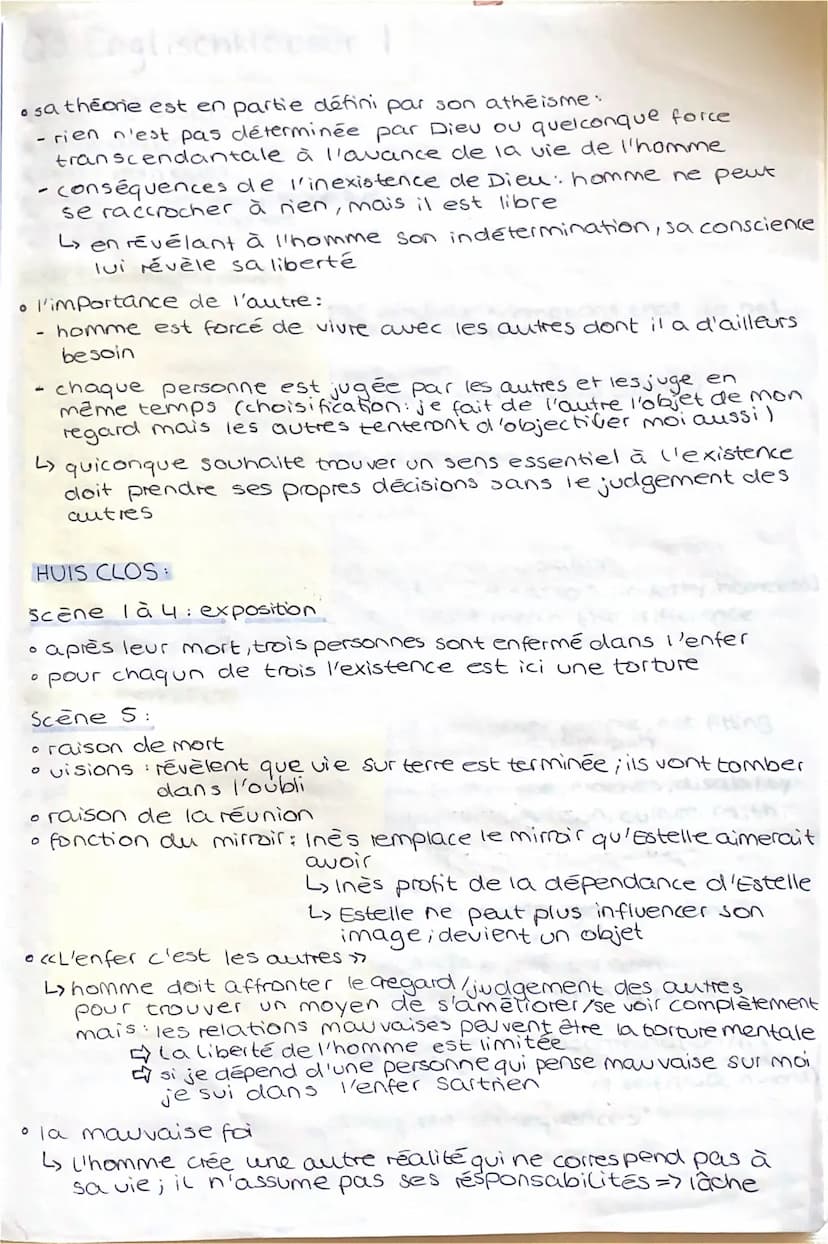 Q3 Englischklausur 1
• sa théorie est en partie défini par son athéisme:
- rien n'est pas déterminée par Dieu ou quelconque force
transcendantale à l'avance de la vie de l'homme
- conséquences de l'inexistence de Dieu: homme ne peut
se raccrocher à rien, mais il est libre
↳ en révélant à l'homme son indétermination, sa conscience
lui révèle sa liberté
• l'importance de l'autre:
- homme est forcé de vivre avec les autres dont il a d'ailleurs
besoin
- chaque personne est jugée par les autres et les juge en
même temps (choisification: je fait de l'autre l'objet de mon
regard mais les autres tenteront d'objectiver moi aussi)
↳ quiconque souhaite trouver un sens essentiel à l'existence
doit prendre ses propres décisions sans le judgement des
autres
HUIS CLOS:
Scène 1 à 4: exposition
• après leur mort, trois personnes sont enfermé dans l'enfer
• pour chaqun de trois l'existence est ici une torture
Scène 5:
• raison de mort
• visions: révèlent que vie sur terre est terminée; ils vont tomber
dans l'oubli
• raison de la réunion
• fonction du mirroir: Inès remplace le mirroir qu'Estelle aimerait
avoir
↳ Inès profit de la dépendance d'Estelle
↳ Estelle ne peut plus influencer son
image; devient un objet
• «L'enfer c'est les autres»
↳ homme doit affronter le regard/judgement des autres
pour trouver un moyen de s'améliorer/se voir complètement
mais: les relations mauvaises peuvent être la torture mentale
⇨ la liberté de l'homme est limitée
⇨ si je dépend d'une personne qui pense mauvaise sur moi
je sui dans l'enfer sartrien
• la mauvaise foi
↳ L'homme crée une autre réalité qui ne correspend pas à
sa vie; il n'assume pas ses résponsabilités => lâche